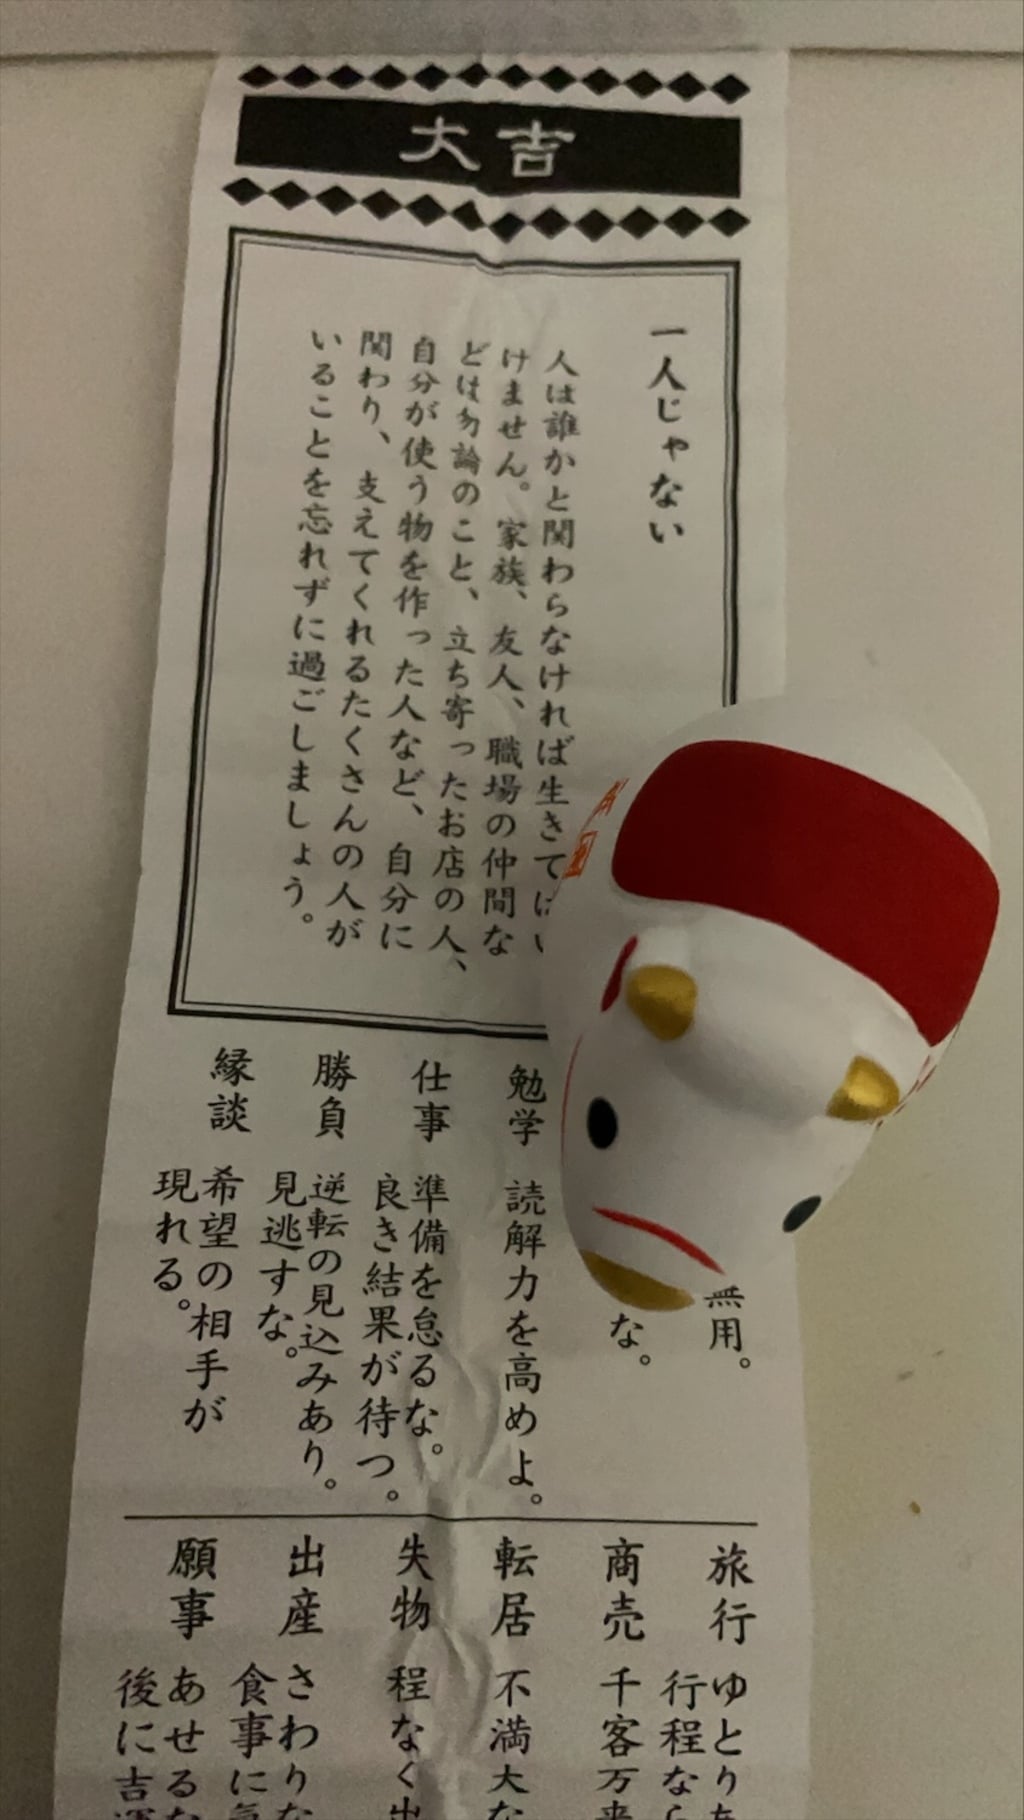 大吉
一人じゃない
人は誰かと関わらなければ生きてはい
けません。家族、友人、職場の仲間な
どは勿論のこと、立ち寄ったお店の人、
自分が使う物を作った人など、自分に
関わり、支えてくれるたくさんの人が
いることを忘れずに過ごしましょう。
無用。
な。
勉学 読解力を高めよ。
仕事 準備を怠るな。
良き結果が待つ。
勝負 逆転の見込みあり。
見逃すな。
縁談 希望の相手が
現れる。
旅行 ゆとりあ
行程なら
商売 千客万来
転居 不満大な
失物 程なく出
出産 さわりな
食事に気
願事 あせるな
後に吉運